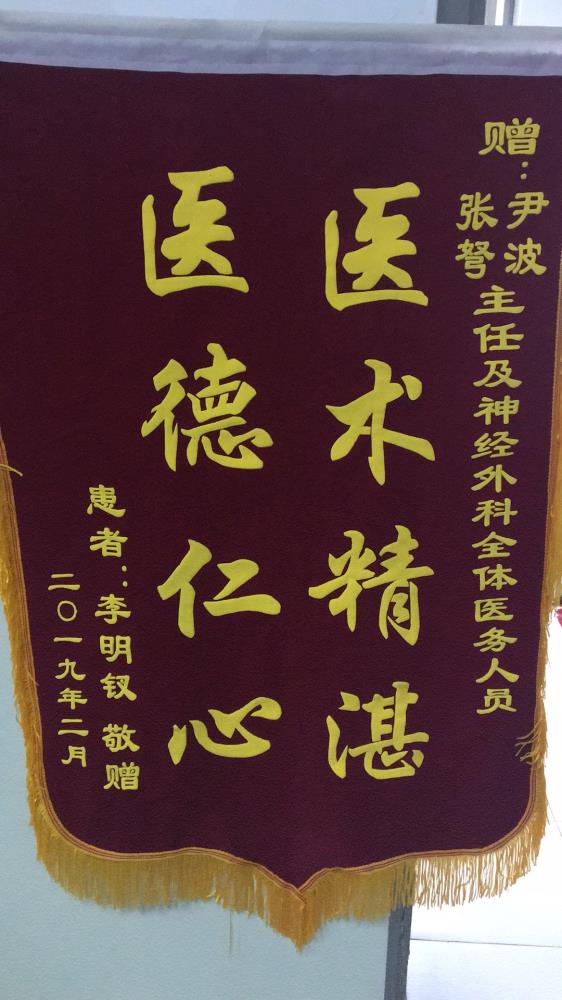 赠：尹波
张弩
主任及神经外科全体医务人员
医术精湛
医德仁心
患者：李明钗 敬赠
二〇一九年二月